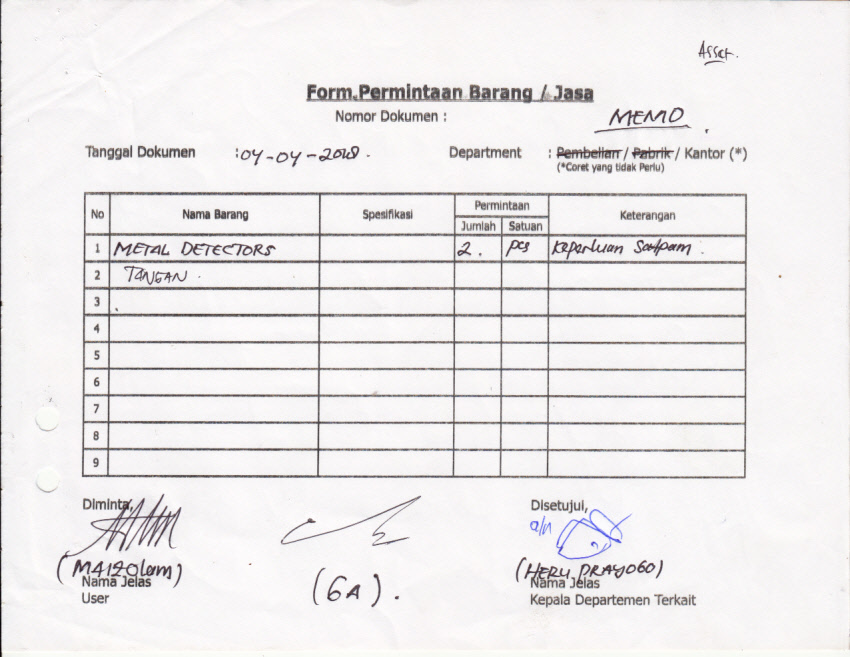 Asset.
Form Permintaan Barang / Jasa
Nomor Dokumen :
MEMO
Tanggal Dokumen : 04-04-2018. Department : Pembelian / Pabrik / Kantor (*)
(*Coret yang tidak Perlu)
No Nama Barang Spesifikasi Permintaan Keterangan
Jumlah Satuan
1 METAL DETECTORS 2. pcs Keperluan Satpam.
2 TANGAN.
3
4
5
6
7
8
9
Diminta, Disetujui,
a/n
(HERU PRAYOGO)
Nama Jelas (GA). Nama Jelas
User Kepala Departemen Terkait